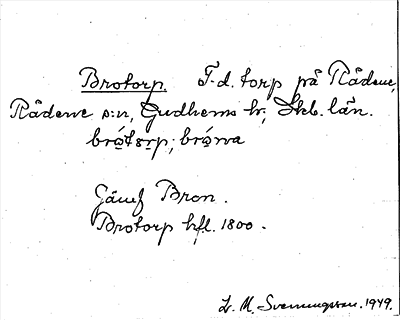 Brotorp. F.d. torp på Rådene,
Rådene s:n, Gudhems hr, Skb. län.
brótsrp; brówa
Jämf Bron.
Brotorp hfl. 1800.
M. Svenungsson. 1949.